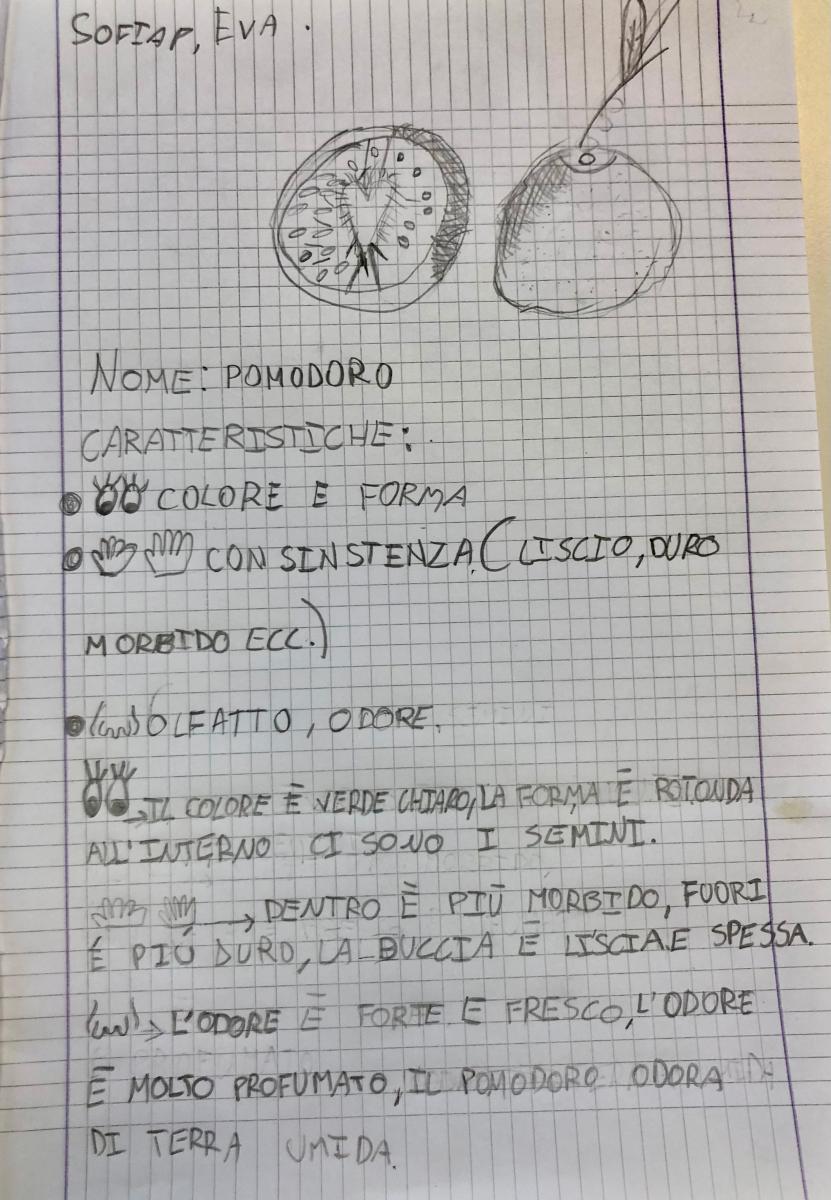 SOFIAP, EVA.
NOME: POMODORO
CARATTERISTICHE:
COLORE E FORMA
CONSINSTENZA (LISCIO, DURO
MORBIDO ECC.)
OLFATTO, ODORE.
IL COLORE È VERDE CHIARO, LA FORMA È ROTONDA
ALL'INTERNO CI SONO I SEMINI.
DENTRO È PIÙ MORBIDO, FUORI
È PIÙ DURO, LA BUCCIA È LISCIA E SPESSA.
L'ODORE È FORTE E FRESCO, L'ODORE
È MOLTO PROFUMATO, IL POMODORO ODORA
DI TERRA UMIDA.